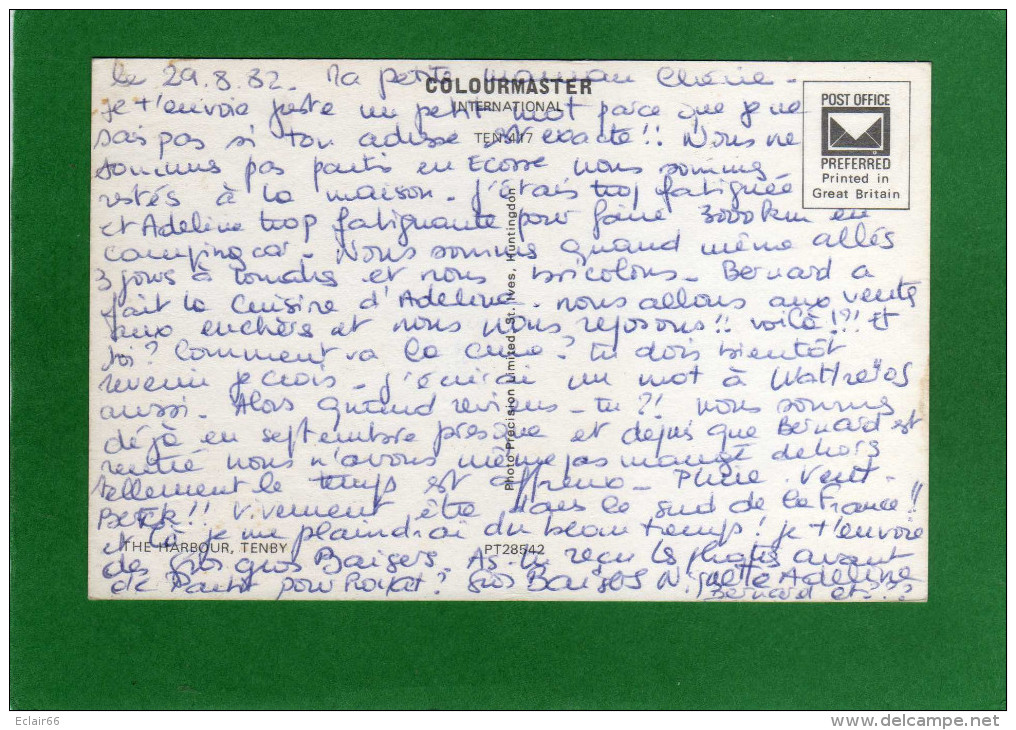 le 29.8.82. Ma petite maman Chérie -
COLOURMASTER
INTERNATIONAL
TEN 417
je t'envoie juste un petit mot parce que je ne
sais pas si ton adresse est exacte!! Nous ne
sommes pas partis en Ecosse nous sommes
restés à la maison - J'étais trop fatiguée
et Adeline trop fatigante pour faire 3000 km en
camping car - Nous sommes quand même allés
3 jours à Londres et nous bricolons - Bernard a
fait la cuisine d'Adeline. nous allons aux ventes
aux enchères et nous nous reposons!! voilà!?! Et
toi? Comment va la cure? Tu dois bientôt
revenir je crois - j'écrirai un mot à Wattrelos
aussi - Alors quand reviens-tu?! Nous sommes
déjà en septembre presque et depuis que Bernard est
rentré nous n'avons même pas mangé dehors
tellement le temps est affreux - Pluie. Vent -
!! Vivement être dans le sud de la France!!
et là je me plaindrai du beau temps! je t'envoie
des gros gros Baisers. As-tu reçu les photos avant
de partir pour Royat? Gros Baisers Adeline
Bernard et
POST OFFICE
PREFERRED
Printed in
Great Britain
Photo Precision Limited, St. Ives, Huntingdon
THE HARBOUR, TENBY
PT28542
Eclair66
http://eclair66.delcampe.net